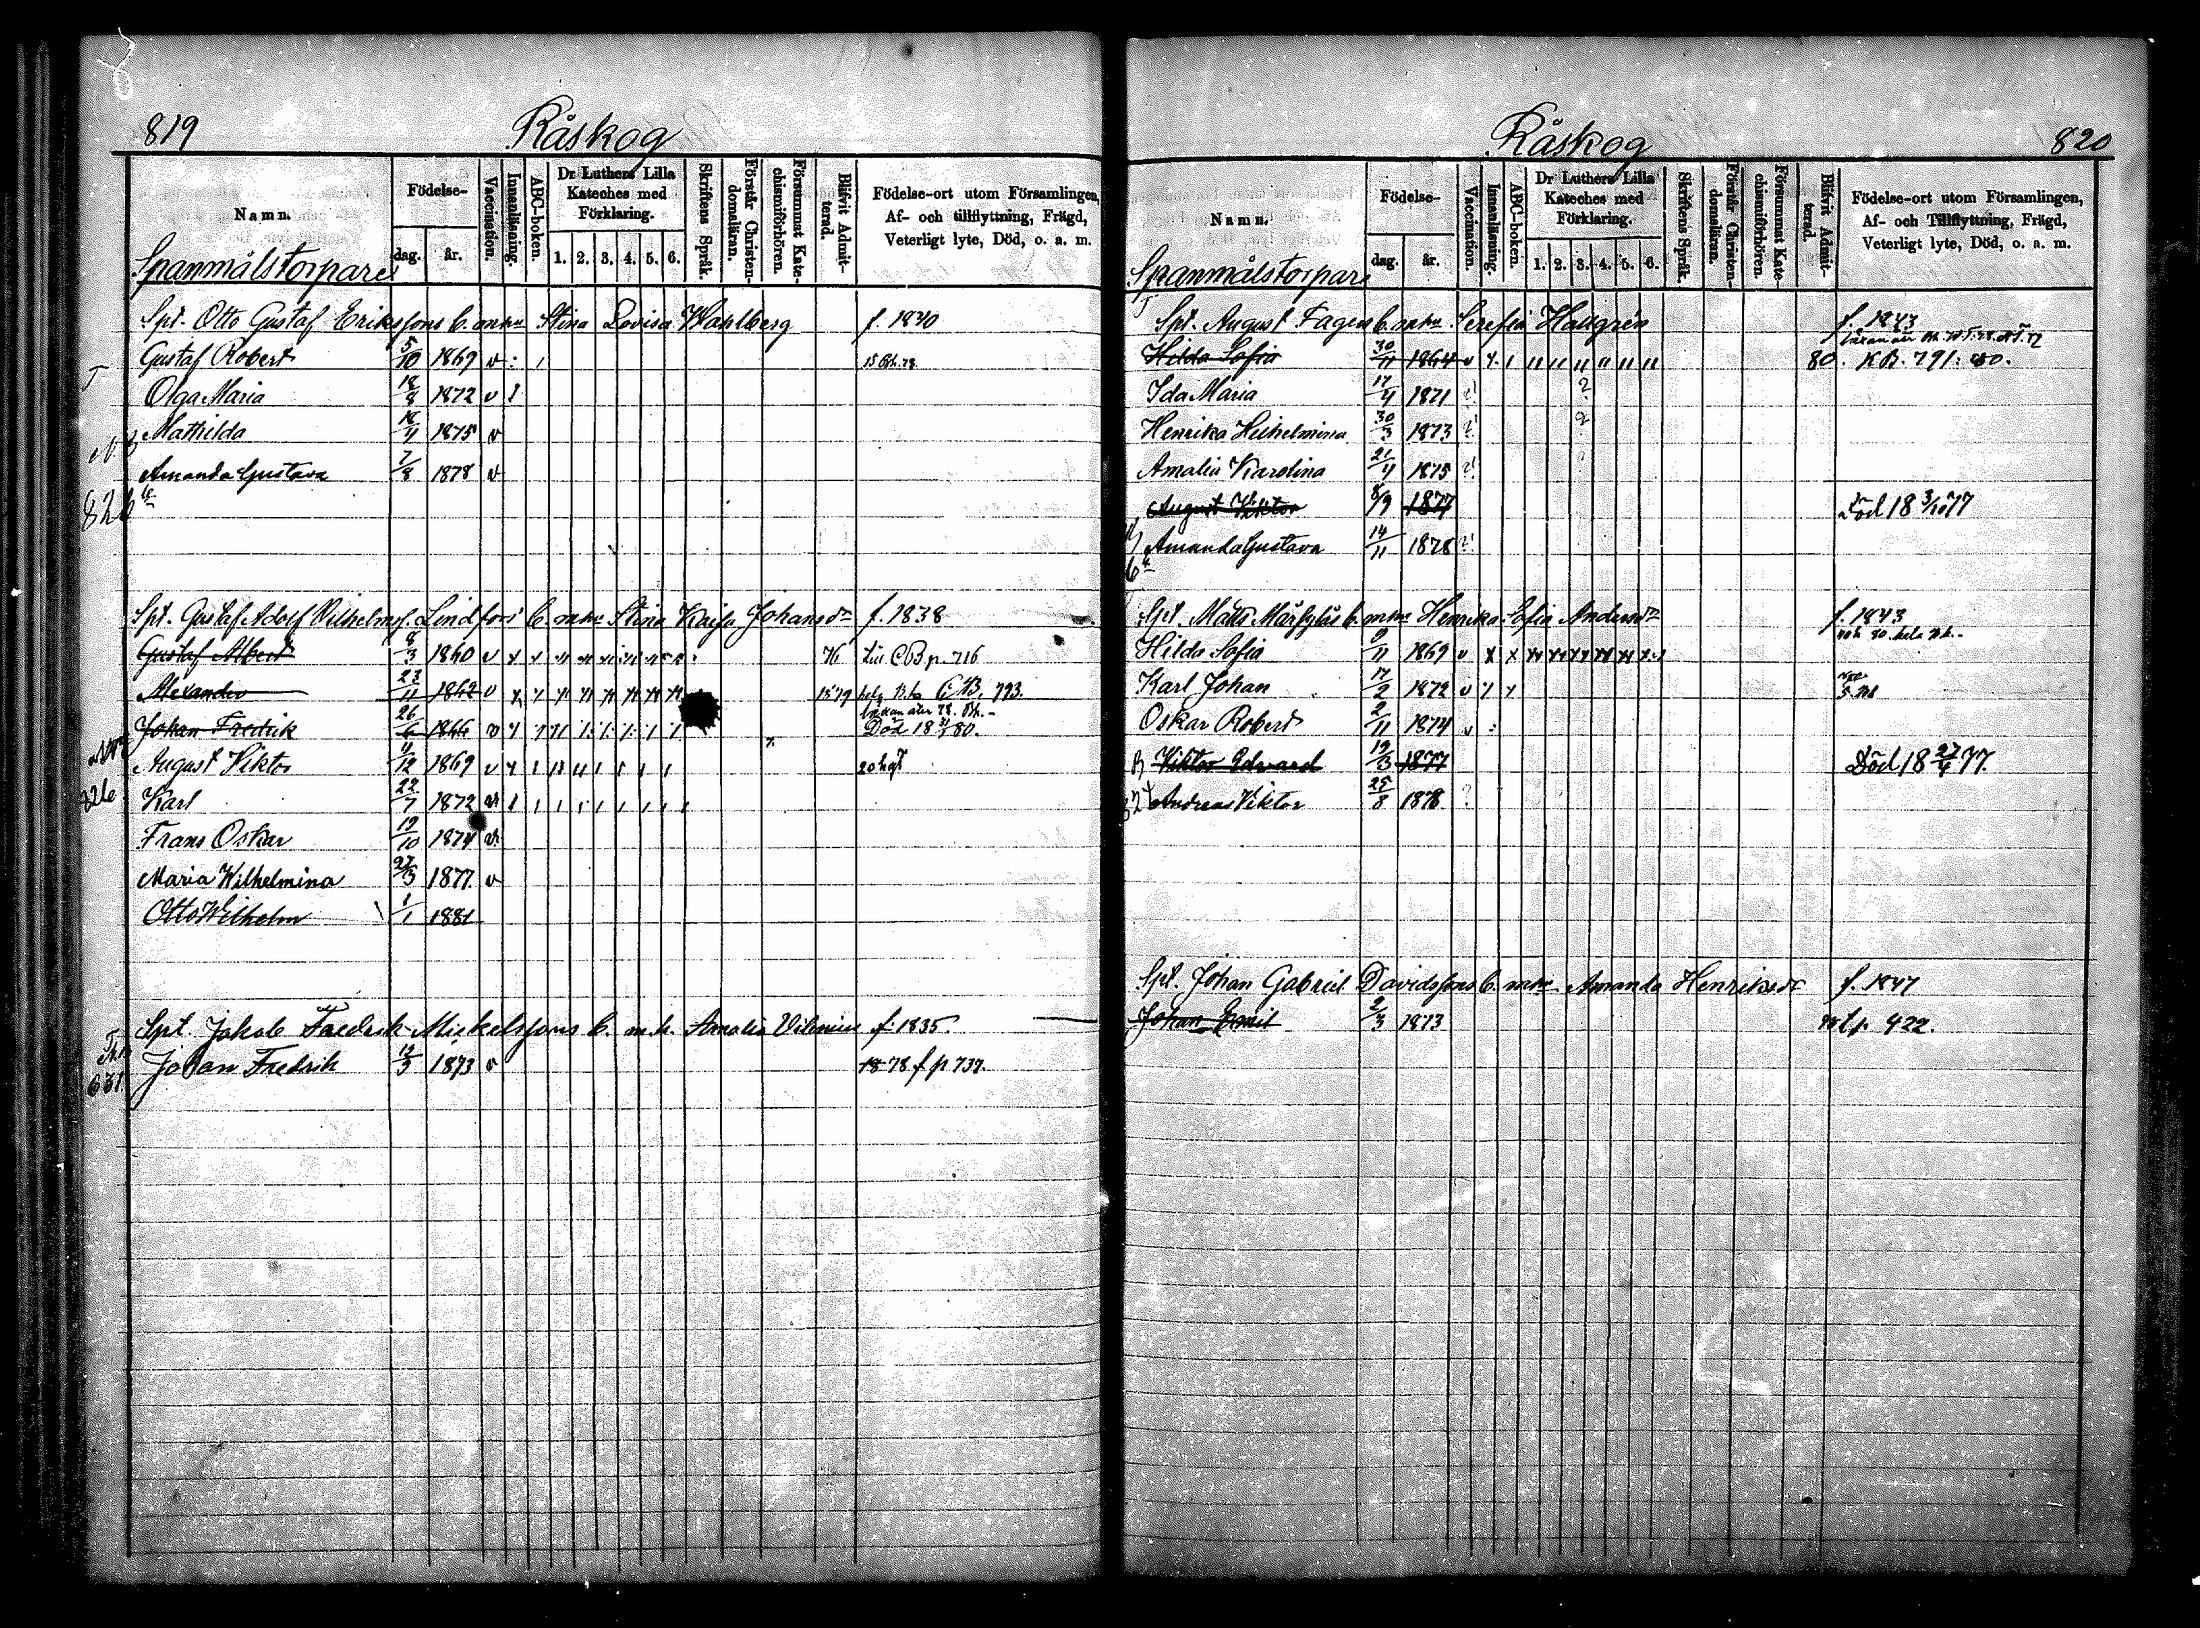 819
Råskog
Namn.
Födelse-
dag.
år.
Vaccination.
Innanläsning.
ABC-boken.
Dr Luthers Lilla
Kateches med
Förklaring.
1. 2. 3. 4. 5. 6.
Skriftens Språk.
Förstår Christen-
domsläran.
Försummat Kate-
chismiförhören.
Blifvit Admit-
terad.
Födelse-ort utom Församlingen,
Af- och tillflyttning, Frägd,
Veterligt lyte, Död, o. a. m.
Spanmålstorpare
Spt. Otto Gustaf Eriksfons b. m. hu Stina Lovisa Wahlberg f. 1840
Gustaf Robert 5/10 1869 v
Olga Maria 18/8 1872 v
Mathilda 16/11 1875 v
Amanda Gustava 7/8 1878 v
826
Spt. Gustaf Adolf Vilhelmsf. Lindfors b. m. hu Stina Kaisa Johansdr f. 1838
Gustaf Albert 8/3 1860 v 76 p. 716
Alexander 23/11 1862 v 1879 793.
Johan Fredrik 26/6 1866 v Död 18 80.
August Viktor 4/12 1869 v
826
Karl 22/7 1872
Frans Oskar 19/10 1874
Maria Wilhelmina 27/3 1877. v
Otto Wilhelm 1/1 1881
Spt. Jakob Fredrik Mickelsfons b. m. h. Amalia Vilenius f. 1835.
Johan Fredrik 12/3 1873 v 18 78 f p 737.
631
Råskog
820
Namn.
Födelse-
dag.
år.
Vaccination.
Innanläsning.
ABC-boken.
Dr Luthers Lilla
Kateches med
Förklaring.
1. 2. 3. 4. 5. 6.
Skriftens Språk.
Förstår Christen-
domsläran.
Försummat Kate-
chismiförhören.
Blifvit Admit-
terad.
Födelse-ort utom Församlingen,
Af- och Tillflyttning, Frägd,
Veterligt lyte, Död, o. a. m.
Spanmålstorpare
Spt. August Fagers b. m. hu Serefia Hallgrén f. 1843
Hilda Sofia 30/11 1864 v 80. KB. 791. 80.
Ida Maria 17/4 1871
Henrika Wilhelmina 30/3 1873
Amalia Karolina 21/4 1875
August Viktor 1877 Död 18 3/10 77
Amanda Gustava 14/11 1878
Spt. Matts b. m. hu Henrika Sofia Andersdr f. 1843
Hilda Sofia 9/11 1869 v
Karl Johan 17/2 1872 v
Oskar Robert 2/11 1874 v
Viktor Edvard 19/3 1877 Död 18 27/4 77.
Andreas Viktor 25/8 1878
Spt. Johan Gabriel Davidsfons b. m. hu Amanda Henriksdr f. 1847
Johan Emil 2/3 1873 p. 422.